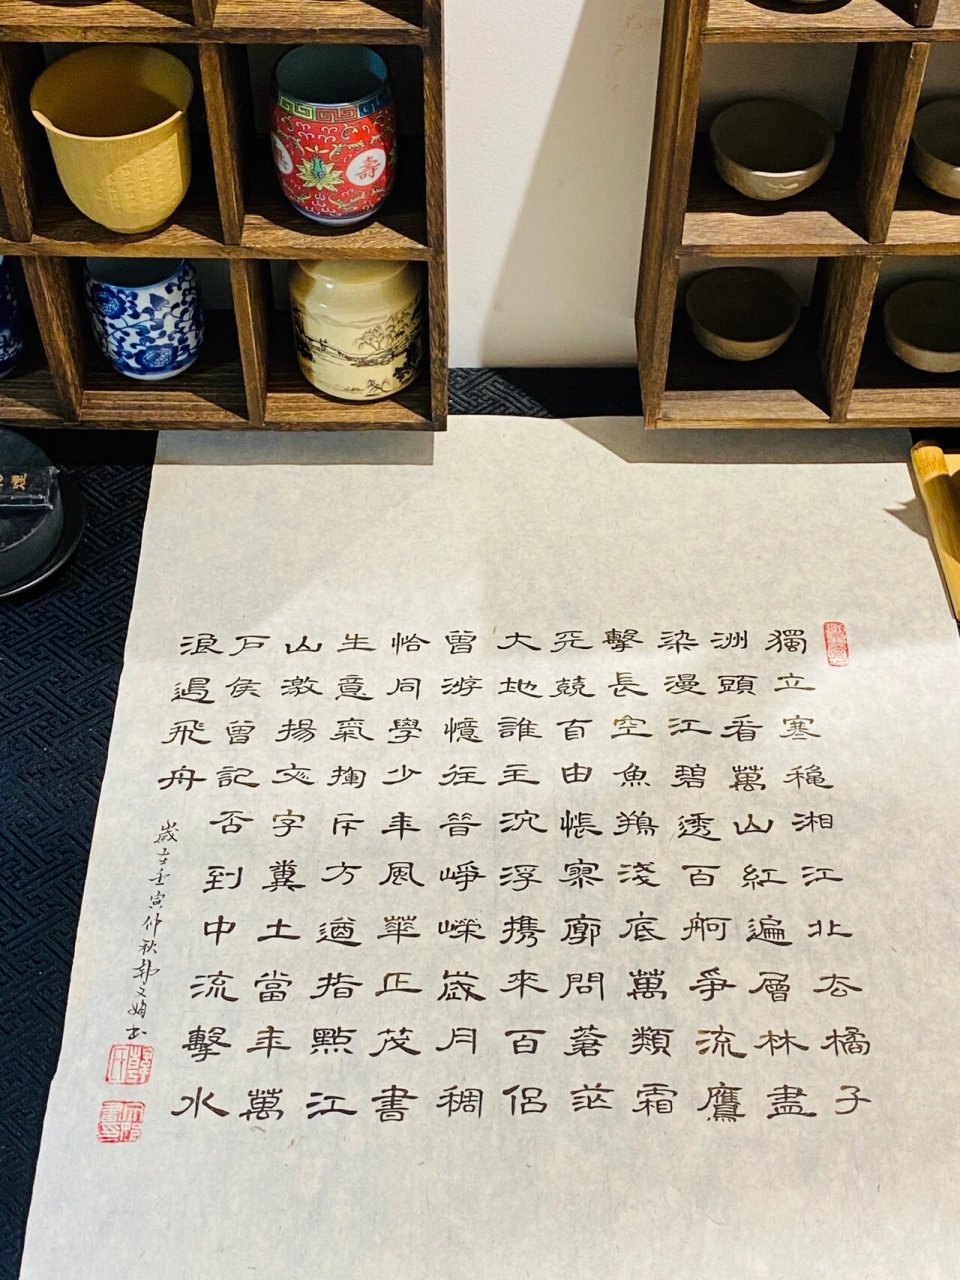 壽
獨立寒穐湘江北去橘子
洲頭看萬山紅遍層林盡
染漫江碧透百舸爭流鷹
擊長空魚翔淺底萬類霜
天競自由悵寥廓問蒼茫
大地誰主沉浮携來百侶
曾游憶往昔崢嶸歲月稠
恰同學少年風華正茂書
生意氣揮斥方遒指點江
山激揚文字糞土當年萬
戶侯曾記否到中流擊水
浪遏飛舟
歲在壬寅仲秋文娟書